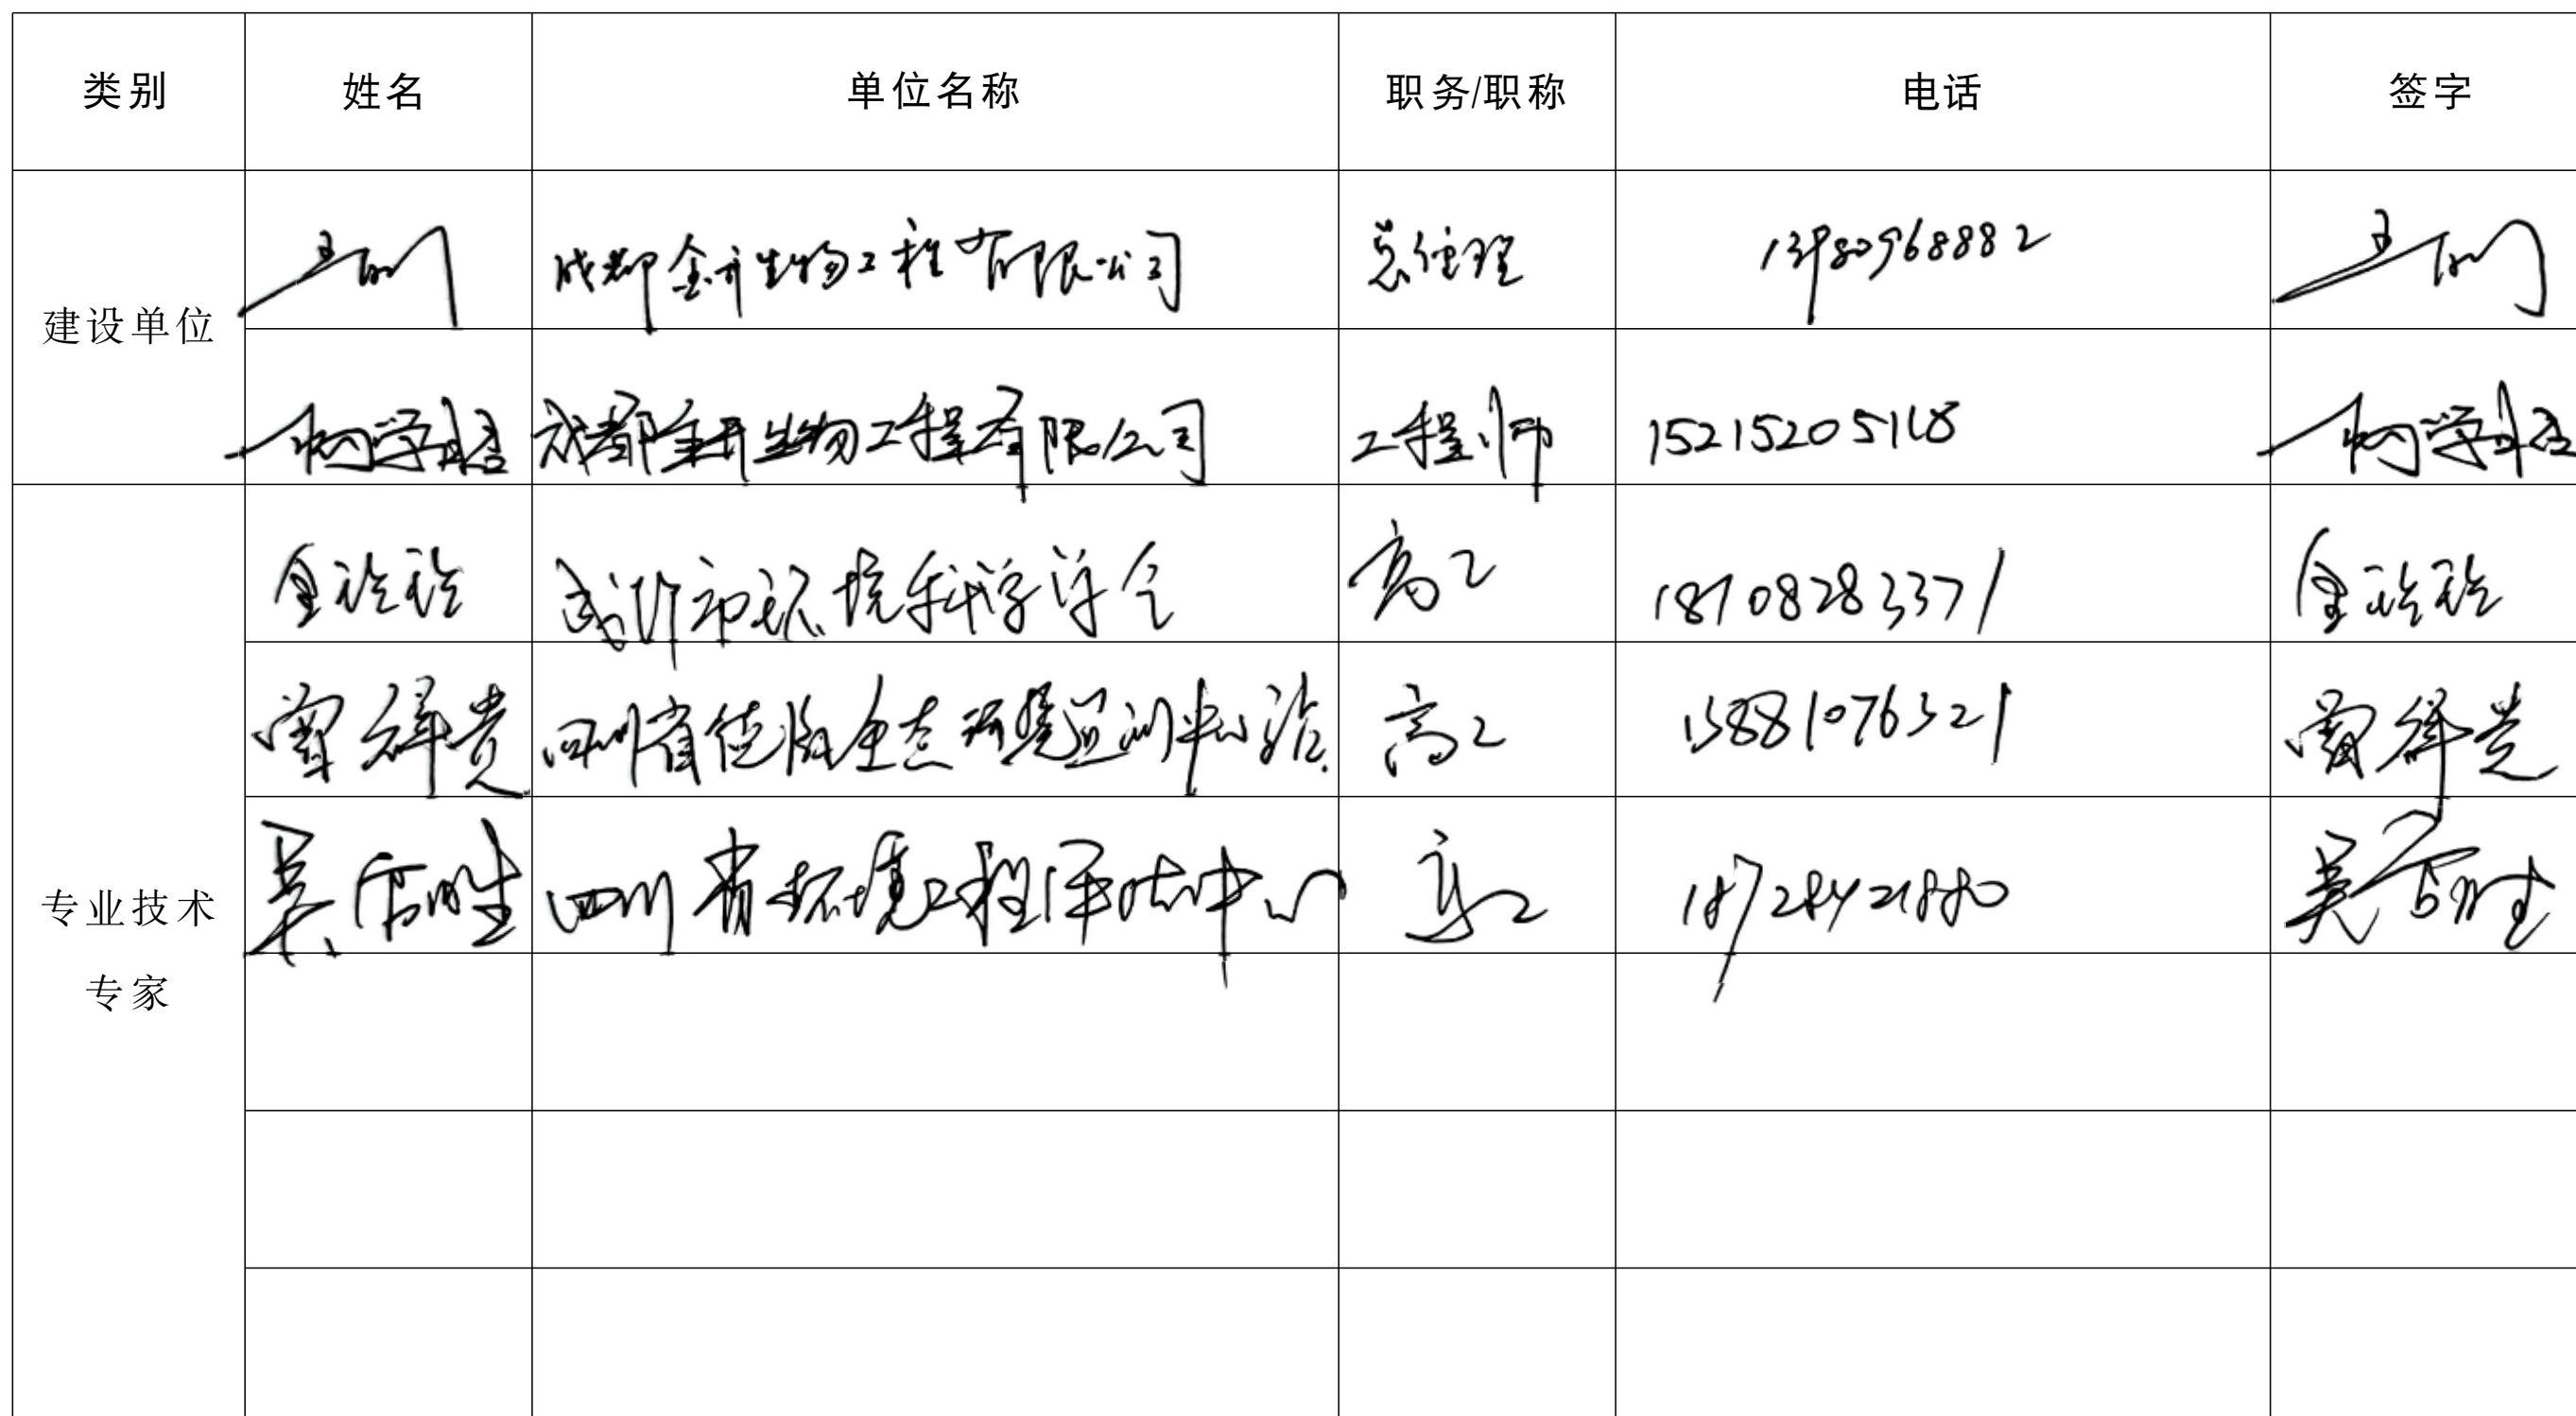 类别 姓名 单位名称 职务/职称 电话 签字
建设单位
成都金开生物工程有限公司 总经理 13980968882
柯学 成都金开生物工程有限公司 工程师 15215205118 柯学
金玲玲 成都市环境科学学会 高工 18108283371 金玲玲
曾祥贵 四川省德阳生态环境监测中心站 高工 13881076321 曾祥贵
专业技术
专家
吴 胜 四川省环境工程评估中心 高工 18728421880 吴 胜